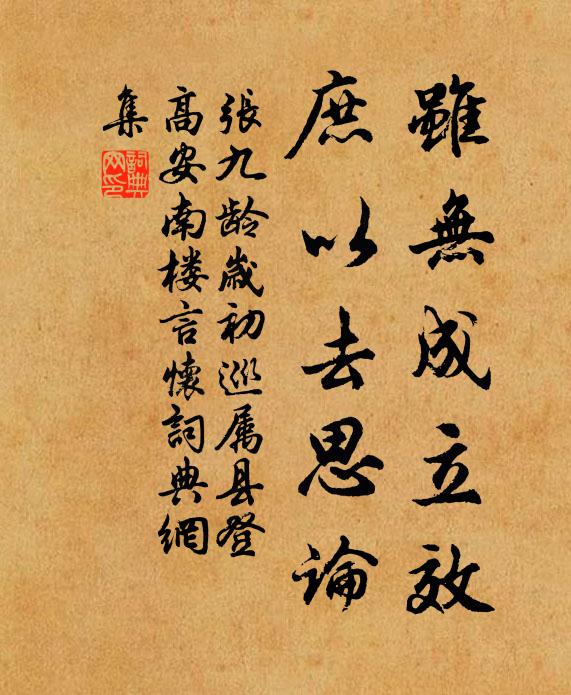 雖無成立效
庶以去思論
張九龄歲初巡属县登
高安南楼言懷詞典網
集
詞典
网印